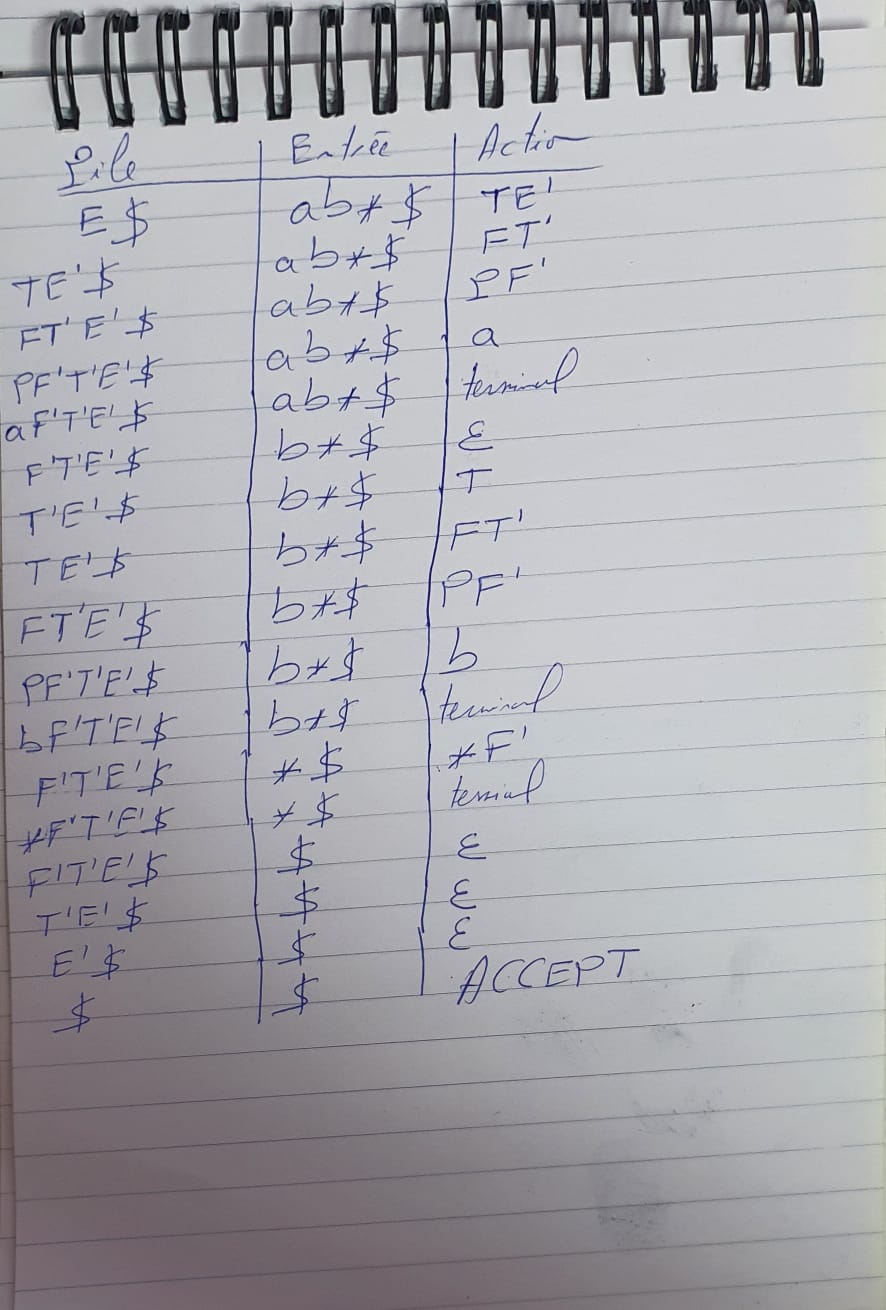 Pile Entrée Action
E$ ab*$ TE'
TE'$ ab*$ FT'
FT'E'$ ab*$ PF'
PF'T'E'$ ab*$ a
aF'T'E'$ ab*$ terminal
F'T'E'$ b*$ ε
T'E'$ b*$ T
TE'$ b*$ FT'
FT'E'$ b*$ PF'
PF'T'E'$ b*$ b
bF'T'E'$ b*$ terminal
F'T'E'$ *$ *F'
*F'T'E'$ *$ terminal
F'T'E'$ $ ε
T'E'$ $ ε
E'$ $ ε
$ $ ACCEPT